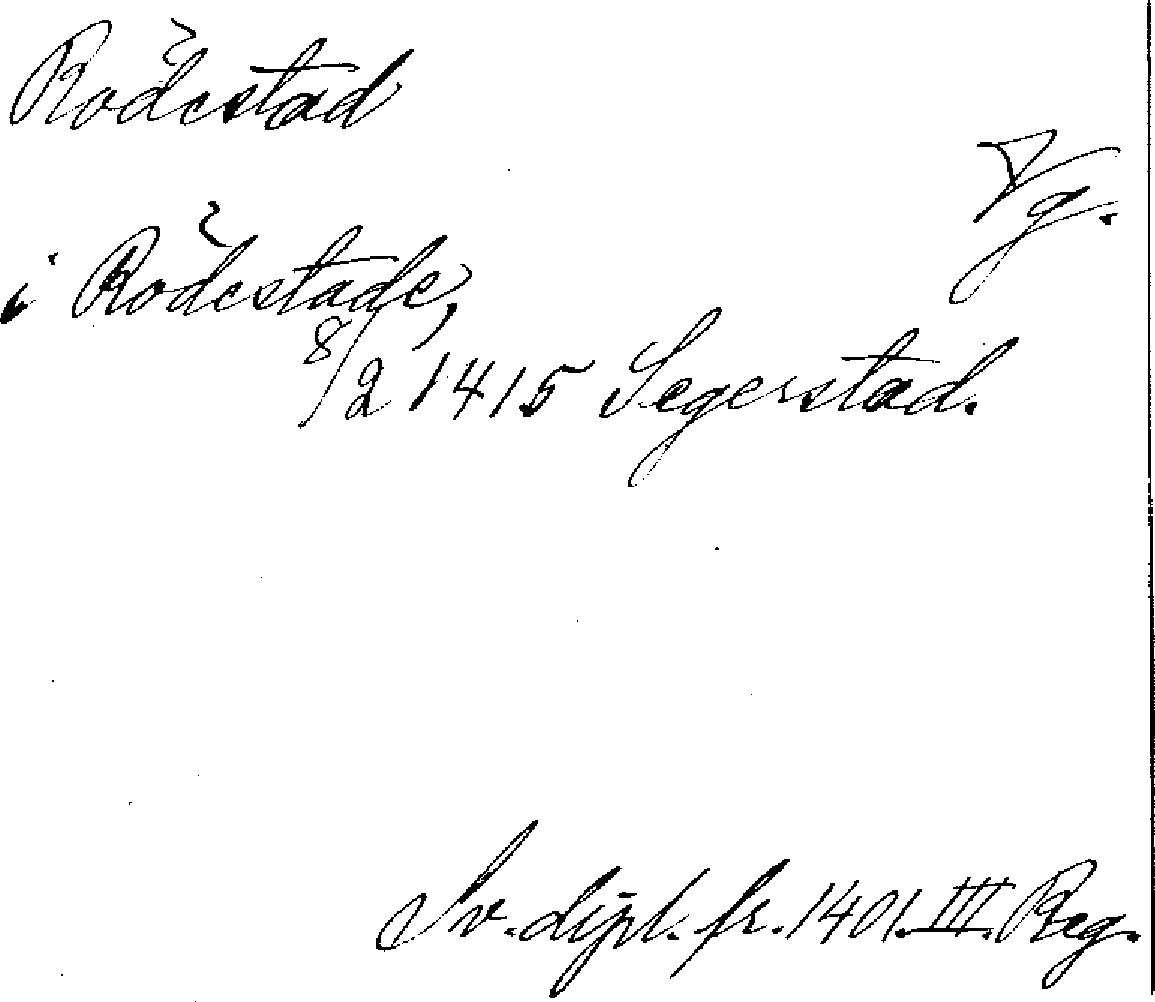 Rödestad
Vg.
i Rödestade,
8/2 1415 Segerstad.
Sv. dipl. fr. 1401. III. Reg.